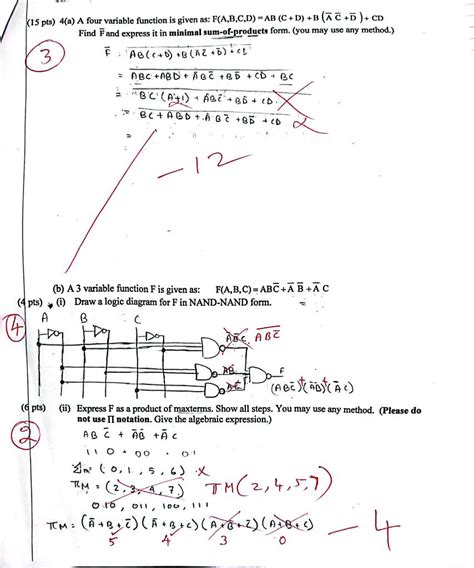 (15 pts) 4(a) A four variable function is given as: F(A,B,C,D) = AB (C + D) + B (A̅ C̅ + D̅ ) + CD
Find F̅ and express it in minimal sum-of-products form. (you may use any method.)
3
F̅ = AB(C+D)+B(AC̅+D̅)+CD
= ABC +ABD + A̅BC̅ + BD̅ + CD + BC
= BC (A+1) + A̅BC̅ + BD̅ + CD
= BC + ABD + A B C̅ + BD̅ + CD
=
-12
(b) A 3 variable function F is given as: F(A,B,C) = ABC̅ + A̅ B̅ + A̅ C
(4 pts) (i) Draw a logic diagram for F in NAND-NAND form.
4
A B C
ABC ABC̅
AB
AC
F
(ABC̅)+(A̅B̅)+(A̅ C)
(6 pts) (ii) Express F as a product of maxterms. Show all steps. You may use any method. (Please do
not use Π notation. Give the algebraic expression.)
2
AB C̅ + A̅B̅ + A̅ C
11 0 + 00 + 01
Σm (0, 1, 5, 6) X
πM = (2, 3, 4, 7) πM(2,4,5,7)
010, 011, 100, 111
πM = (A̅+B+C̅)(A̅+B+C)(A+B+C̅)(A+B+C)
5 4 3 0
-4